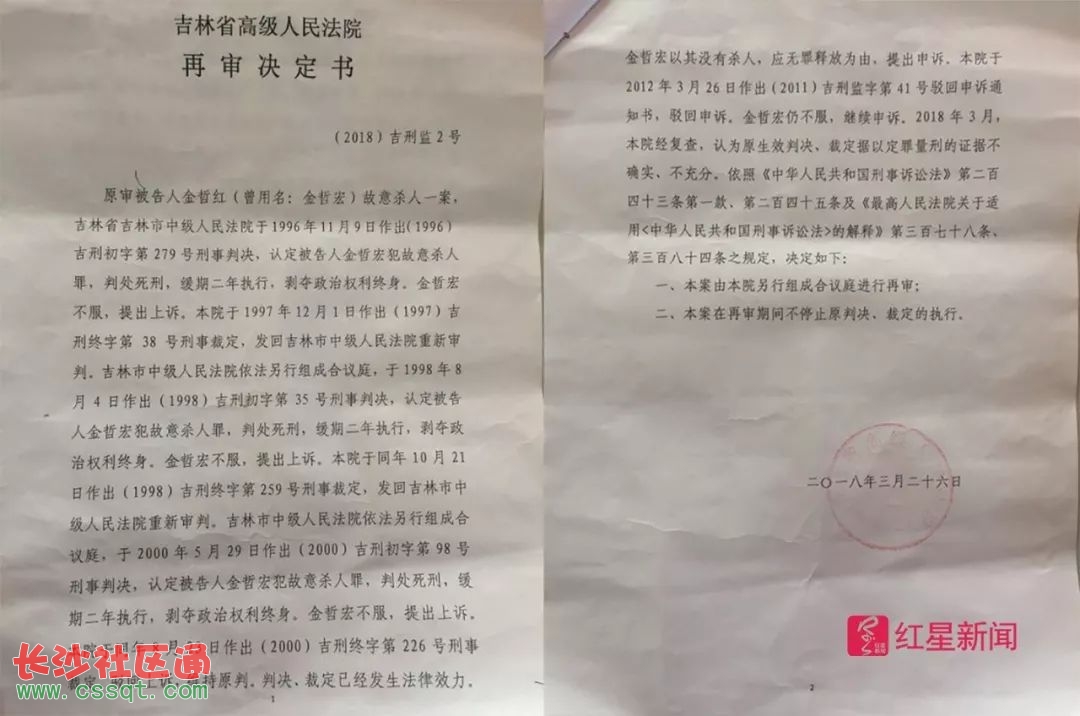 吉林省高级人民法院
再审决定书
（2018）吉刑监2号
原审被告人金哲红（曾用名：金哲宏）故意杀人一案，
吉林省吉林市中级人民法院于1996年11月9日作出(1996)
吉刑初字第279号刑事判决，认定被告人金哲宏犯故意杀人
罪，判处死刑，缓期二年执行，剥夺政治权利终身。金哲宏
不服，提出上诉。本院于1997年12月1日作出（1997）吉
刑终字第 38 号刑事裁定，发回吉林市中级人民法院重新审
判。吉林市中级人民法院依法另行组成合议庭，于1998年8
月4日作出（1998）吉刑初字第35号刑事判决，认定被告
人金哲宏犯故意杀人罪，判处死刑，缓期二年执行，剥夺政
治权利终身。金哲宏不服，提出上诉。本院于同年10月21
日作出（1998）吉刑终字第259号刑事裁定，发回吉林市中
级人民法院重新审判。吉林市中级人民法院依法另行组成合
议庭，于2000年5月29日作出（2000）吉刑初字第98号
刑事判决，认定被告人金哲宏犯故意杀人罪，判处死刑，缓
期二年执行，剥夺政治权利终身。金哲宏不服，提出上诉。
日作出（2000）吉刑终字第226号刑事
裁定，驳回上诉，维持原判。判决、裁定已经发生法律效力。
1
长沙社区通
www.cssqt.com
金哲宏以其没有杀人，应无罪释放为由，提出申诉。本院于
2012年3月26日作出（2011）吉刑监字第41号驳回申诉通
知书，驳回申诉。金哲宏仍不服，继续申诉。2018年3月，
本院经复查，认为原生效判决、裁定据以定罪量刑的证据不
确实、不充分。依照《中华人民共和国刑事诉讼法》第二百
四十三条第一款、第二百四十五条及《最高人民法院关于适
用<中华人民共和国刑事诉讼法>的解释》第三百七十八条、
第三百八十四条之规定，决定如下：
一、本案由本院另行组成合议庭进行再审；
二、本案在再审期间不停止原判决、裁定的执行。
二〇一八年三月二十六日
红星新闻
2